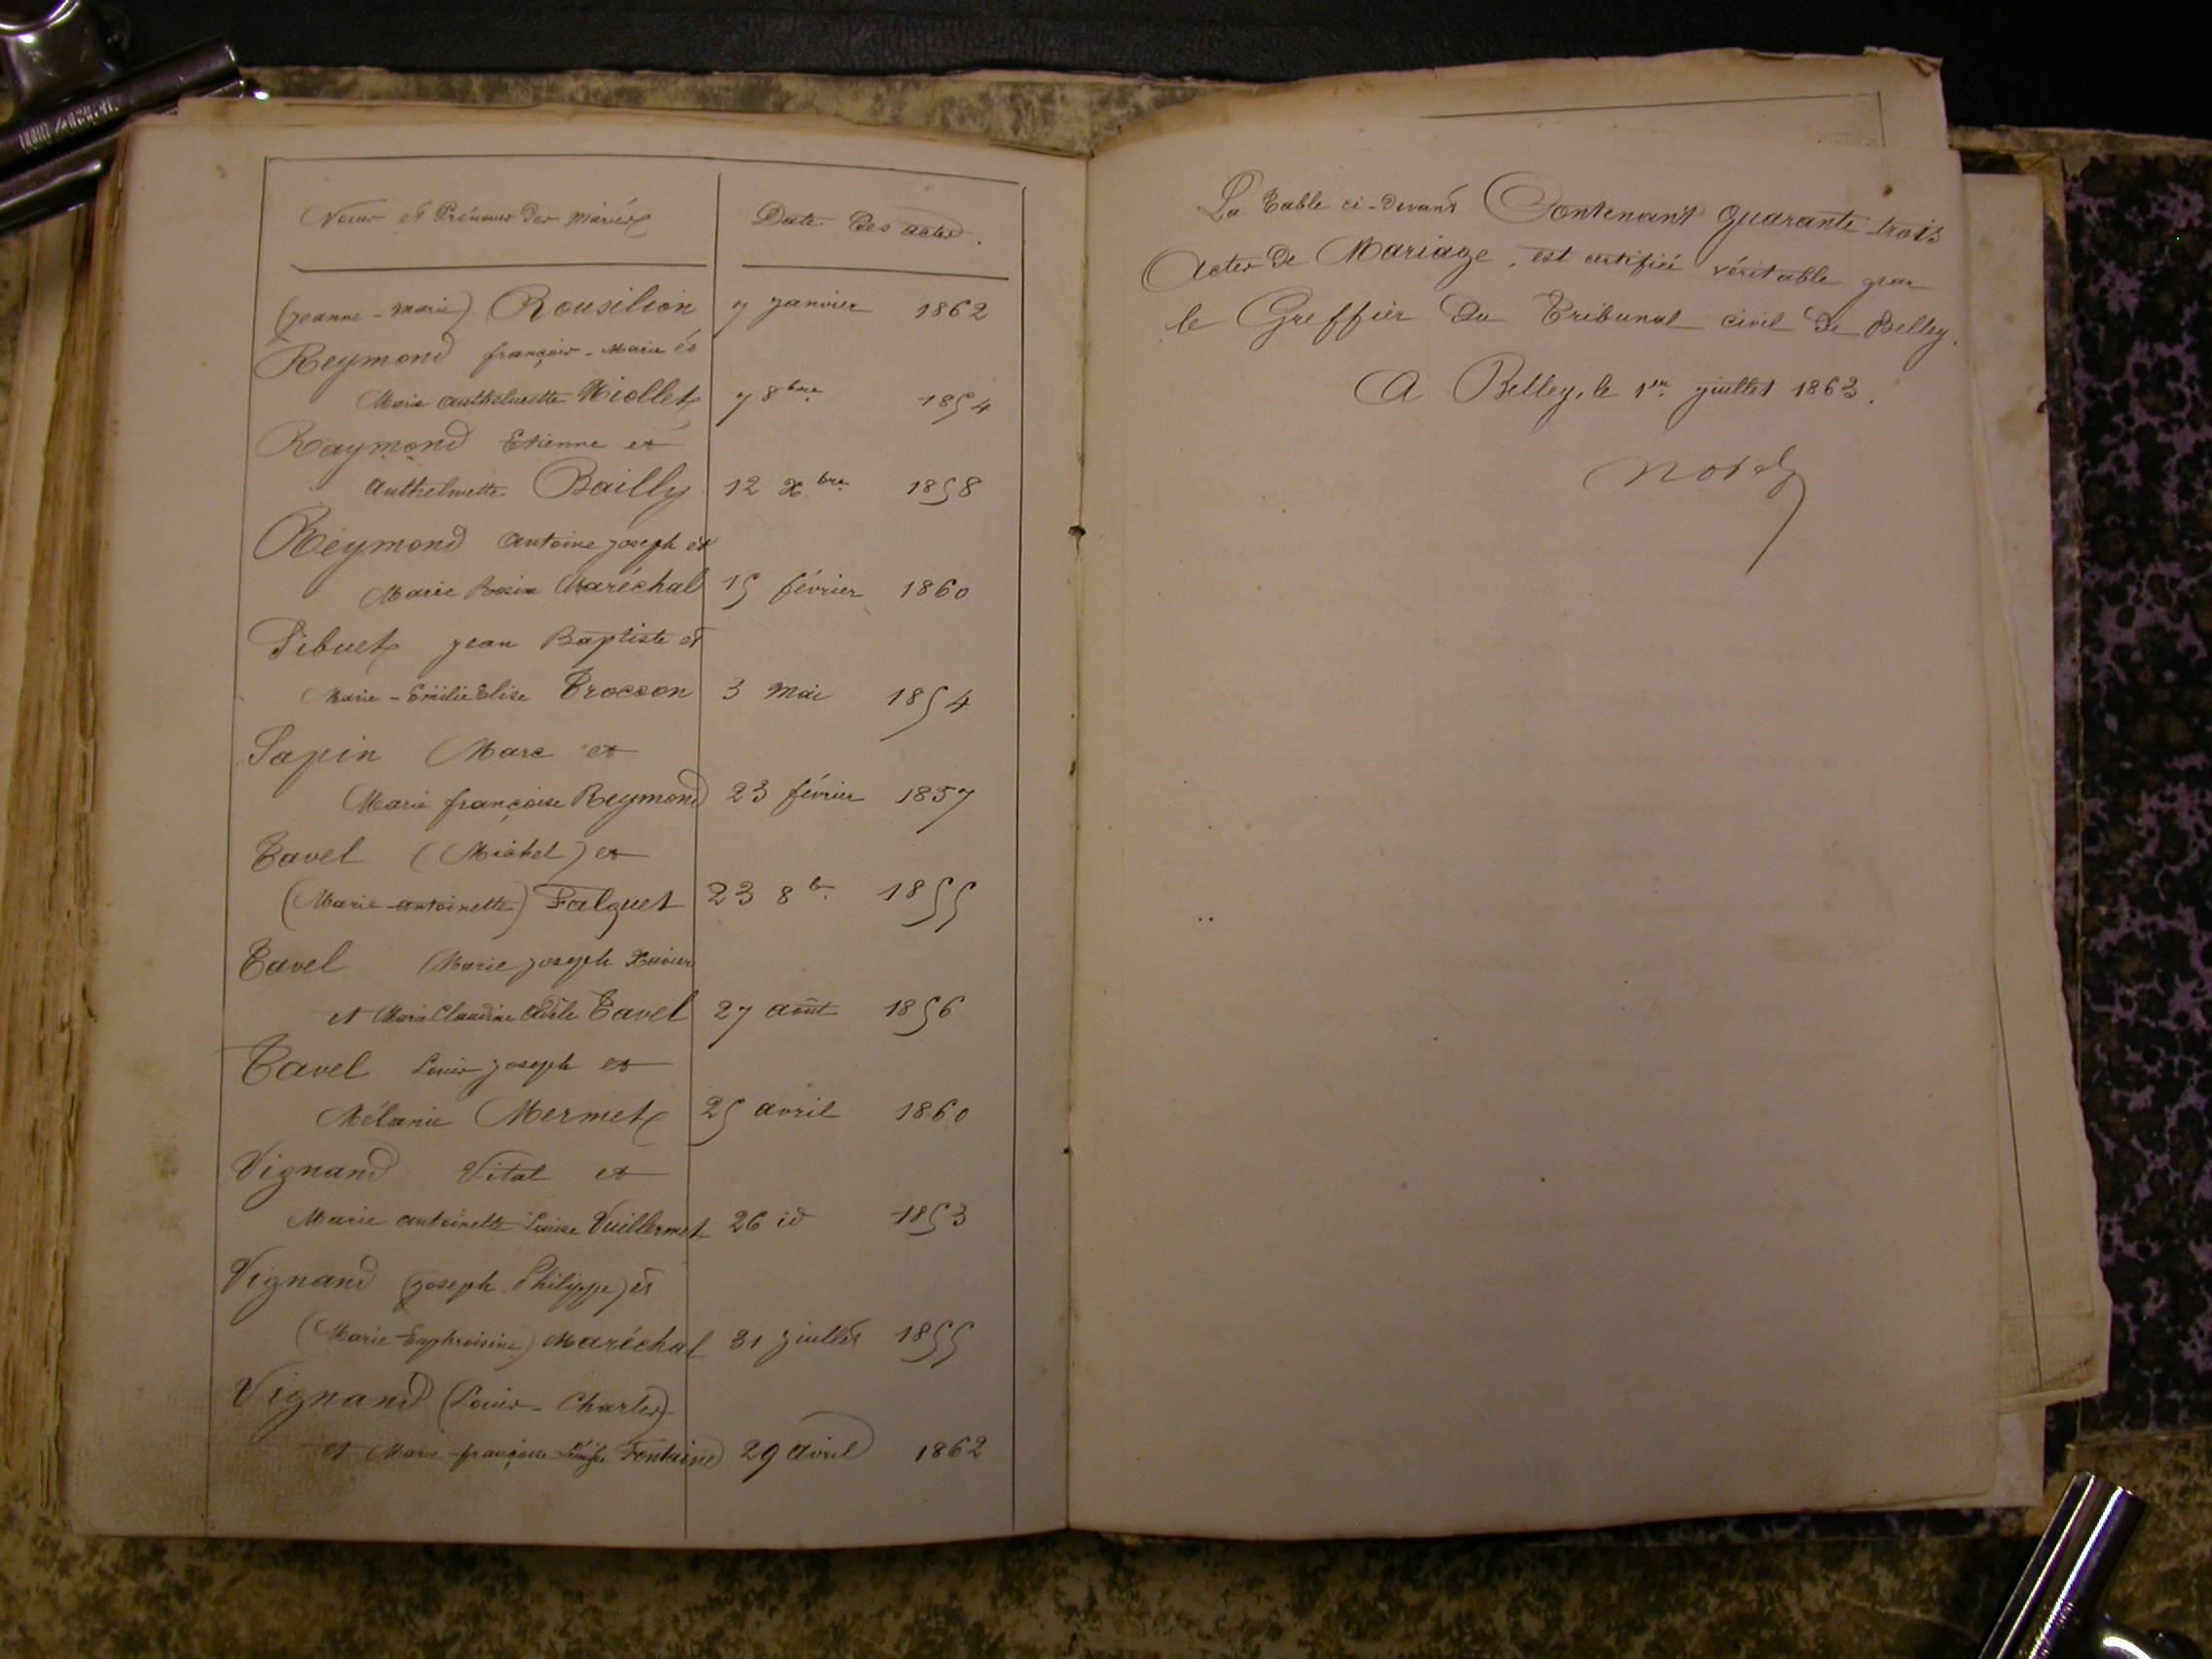 Noms et Prénoms des mariés
Date des actes.
(jeanne-marie) Rousilion 7 janvier 1862
Reymond françois-Marie et
Marie anthelmette Miollet 7 8bre 1854
Raymond Etienne et
Anthelmette Bailly 12 Xbre 1858
Reymond Antoine joseph et
Marie Rosine Maréchal 15 février 1860
Sibuet jean Baptiste et
Marie-Emilie Elise Trocson 3 Mai 1854
Sapin Marc et
Marie françoise Reymond 23 février 1857
Tavel (Michel) et
(Marie-antoinette) Falquet 23 8b. 1855
Tavel Marie joseph Xavier
et Marie Claudine Adèle Tavel 27 août 1856
Tavel Louis joseph et
Mélanie Mermet 25 avril 1860
Vignand Vital et
Marie antoinette Louise Vuillermet 26 id 1853
Vignand (joseph Philippe) et
(Marie-Euphroisine) Maréchal 31 juillet 1855
Vignand (Louis-Charles)
et Marie-françoise Fontaine 29 avril 1862
La Table ci-devant Contenant quarante-trois
Actes de Mariage, est certifiée véritable par
le Greffier du Tribunal civil de Belley.
A Belley, le 1er juillet 1863.